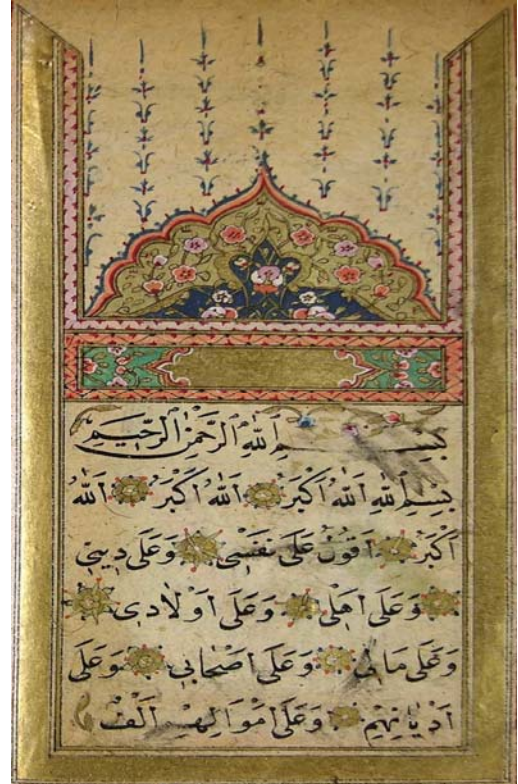 بِسْمِ اللّٰهِ الرَّحْمٰنِ الرَّحِيمِ
بِسْمِ اللّٰهِ اَللّٰهُ اَكْبَرُ اَللّٰهُ اَكْبَرُ اَللّٰهُ
اَكْبَرُ اَقُولُ عَلَى نَفْسِى وَعَلَى دِينِى
وَعَلَى اَهْلِى وَعَلَى اَوْلَادِى
وَعَلَى مَالِى وَعَلَى اَصْحَابِى وَعَلَى
اَدْيَانِهِمْ وَعَلَى اَمْوَالِهِمْ اَلْفَ